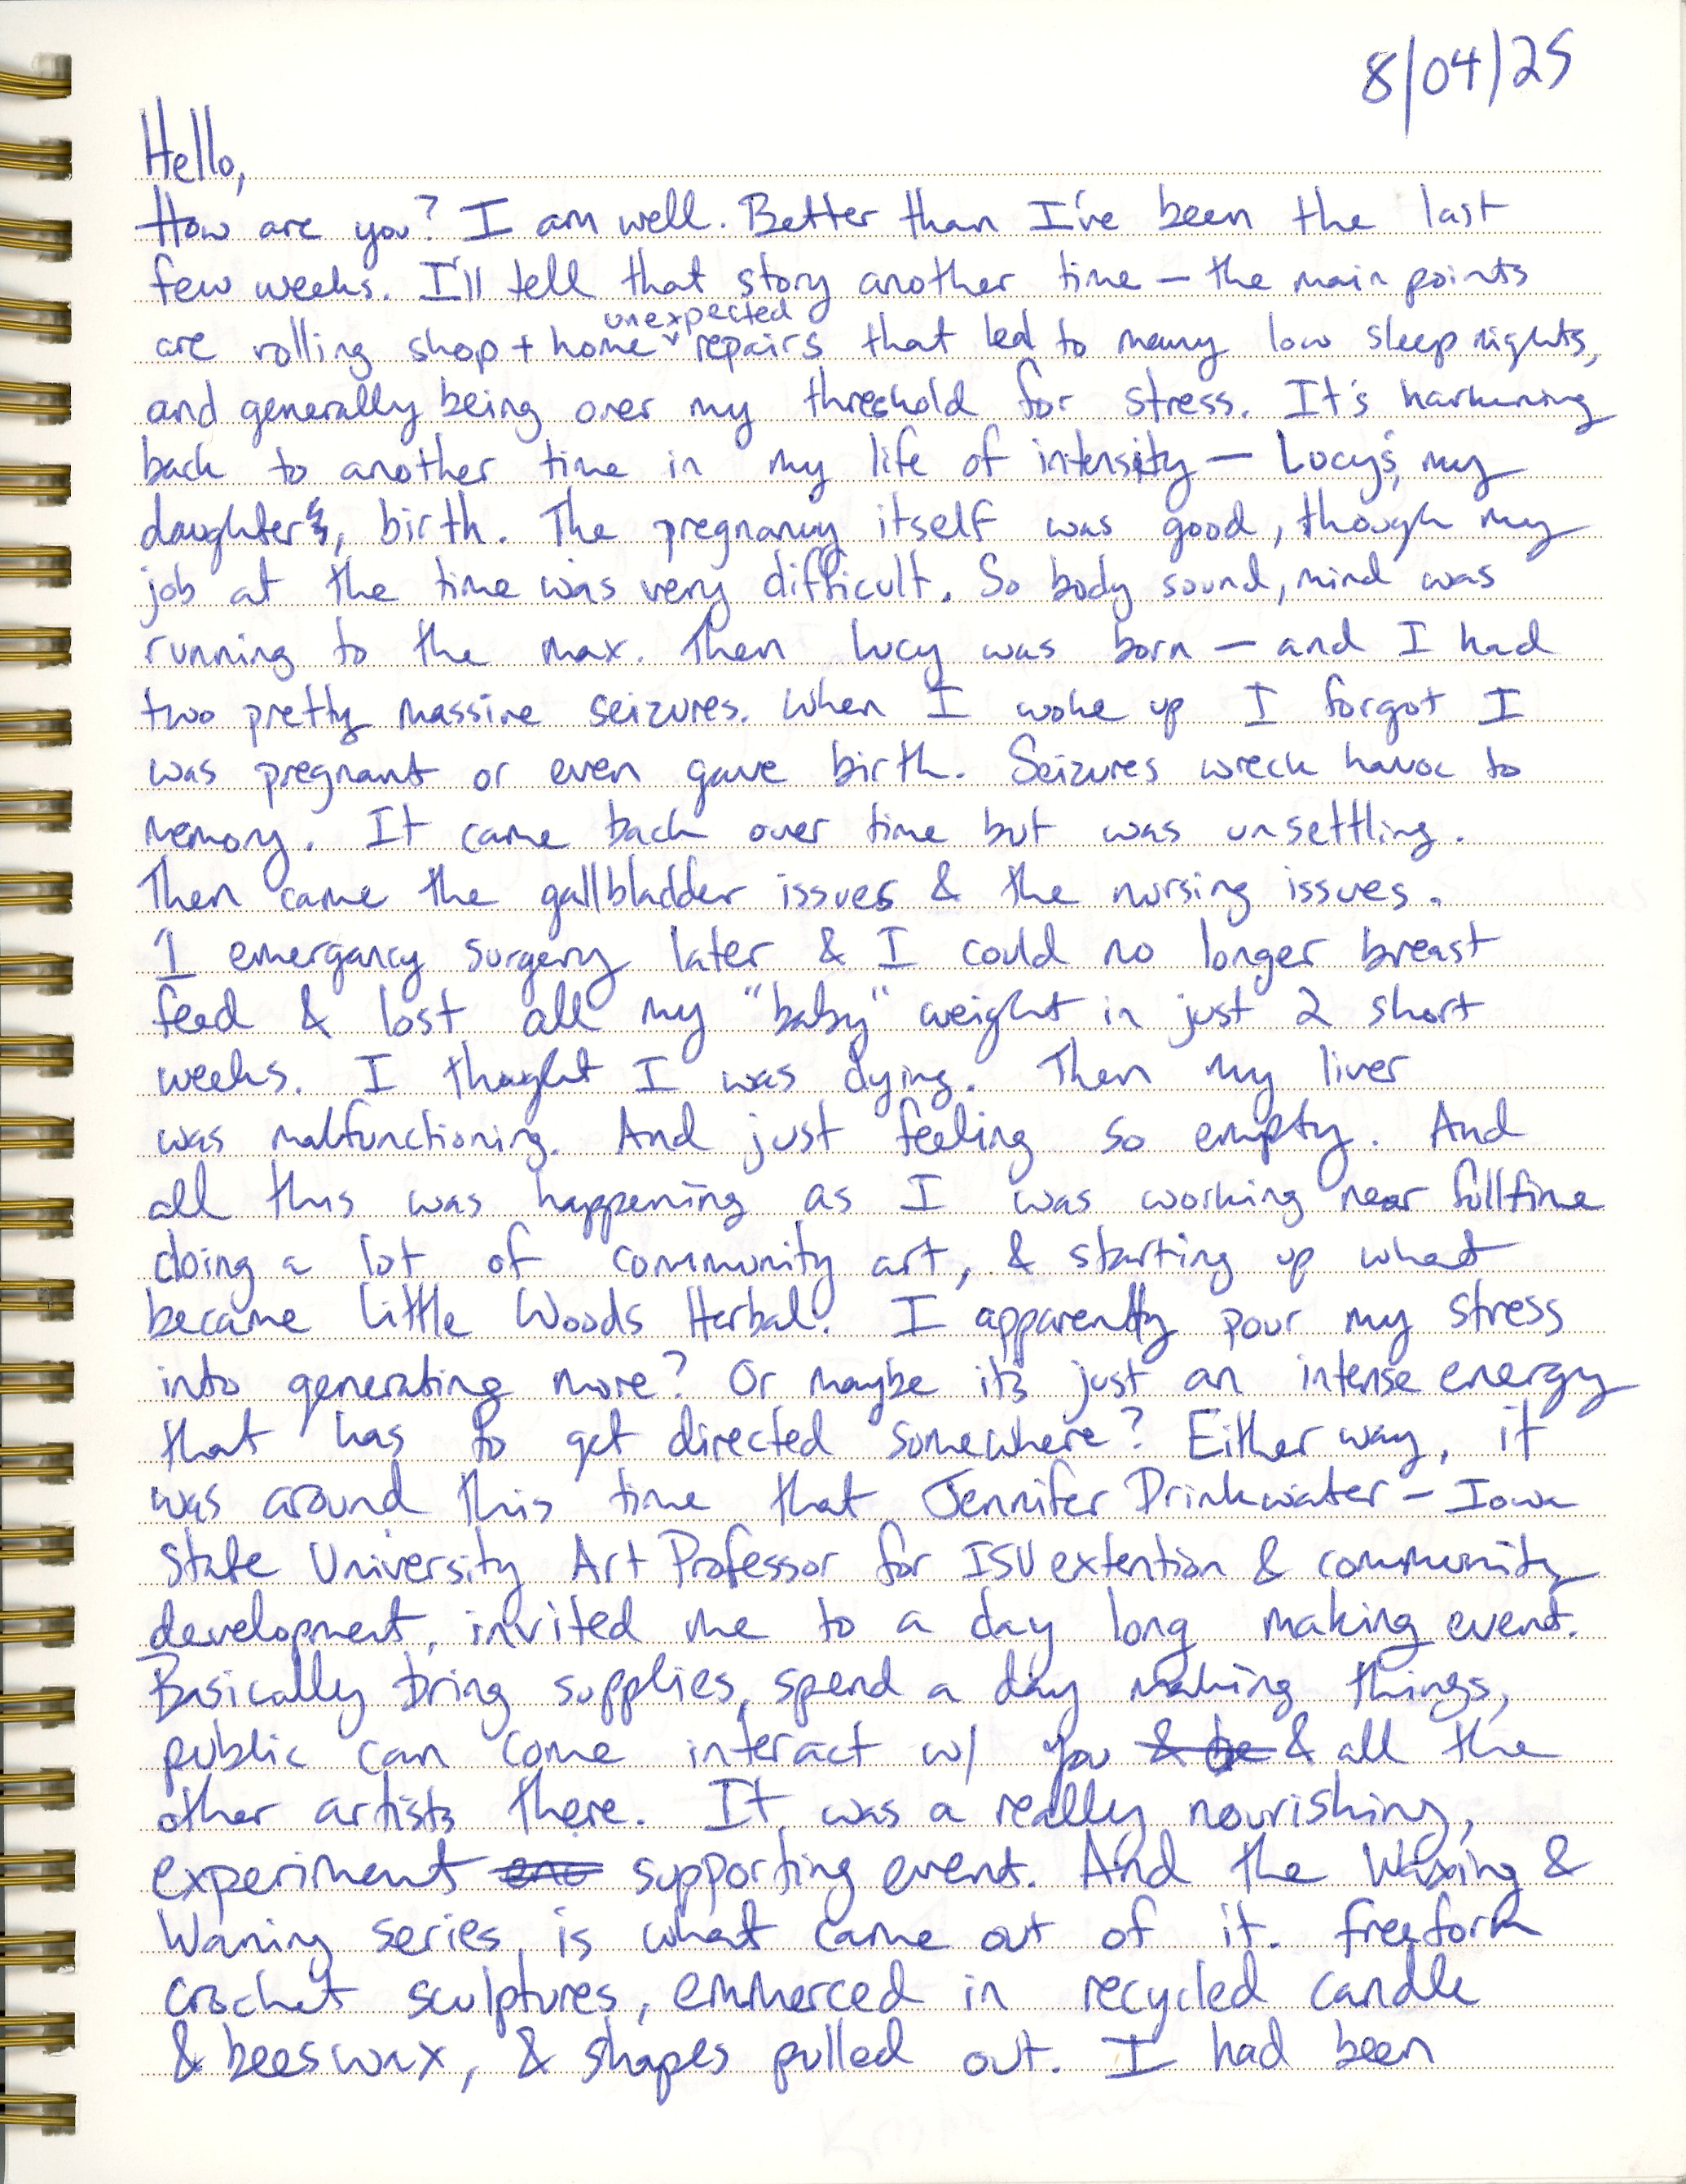 8/04/25
Hello,
How are you? I am well. Better than I've been the last
few weeks. I'll tell that story another time — the main points
are rolling shop + home unexpected repairs that led to many low sleep nights,
and generally being over my threshold for stress. It's harkening
back to another time in my life of intensity — Lucy's, my
daughter's, birth. The pregnancy itself was good, though my
job at the time was very difficult. So body sound, mind was
running to the max. Then Lucy was born — and I had
two pretty massive seizures. When I woke up I forgot I
was pregnant or even gave birth. Seizures wreck havoc to
memory. It came back over time but was unsettling.
Then came the gallbladder issues & the nursing issues.
1 emergancy surgery later & I could no longer breast
feed & lost all my "baby" weight in just 2 short
weeks. I thought I was dying. Then my liver
was malfunctioning. And just feeling so empty. And
all this was happening as I was working near fulltime
doing a lot of community art, & starting up what
became Little Woods Herbal. I apparently pour my stress
into generating more? Or maybe its just an intense energy
that has to get directed somewhere? Either way, it
was around this time that Jennifer Drinkwater — Iowa
State University Art Professor for ISU extention & community
development, invited me to a day long making event.
Basically bring supplies, spend a day making things,
public can come interact w/ you & be & all the
other artists there. It was a really nourishing,
experiment supporting event. And the Waxing &
Waning series, is what came out of it. freeform
crochet sculptures, emmerced in recycled candle
& beeswax, & shapes pulled out. I had been